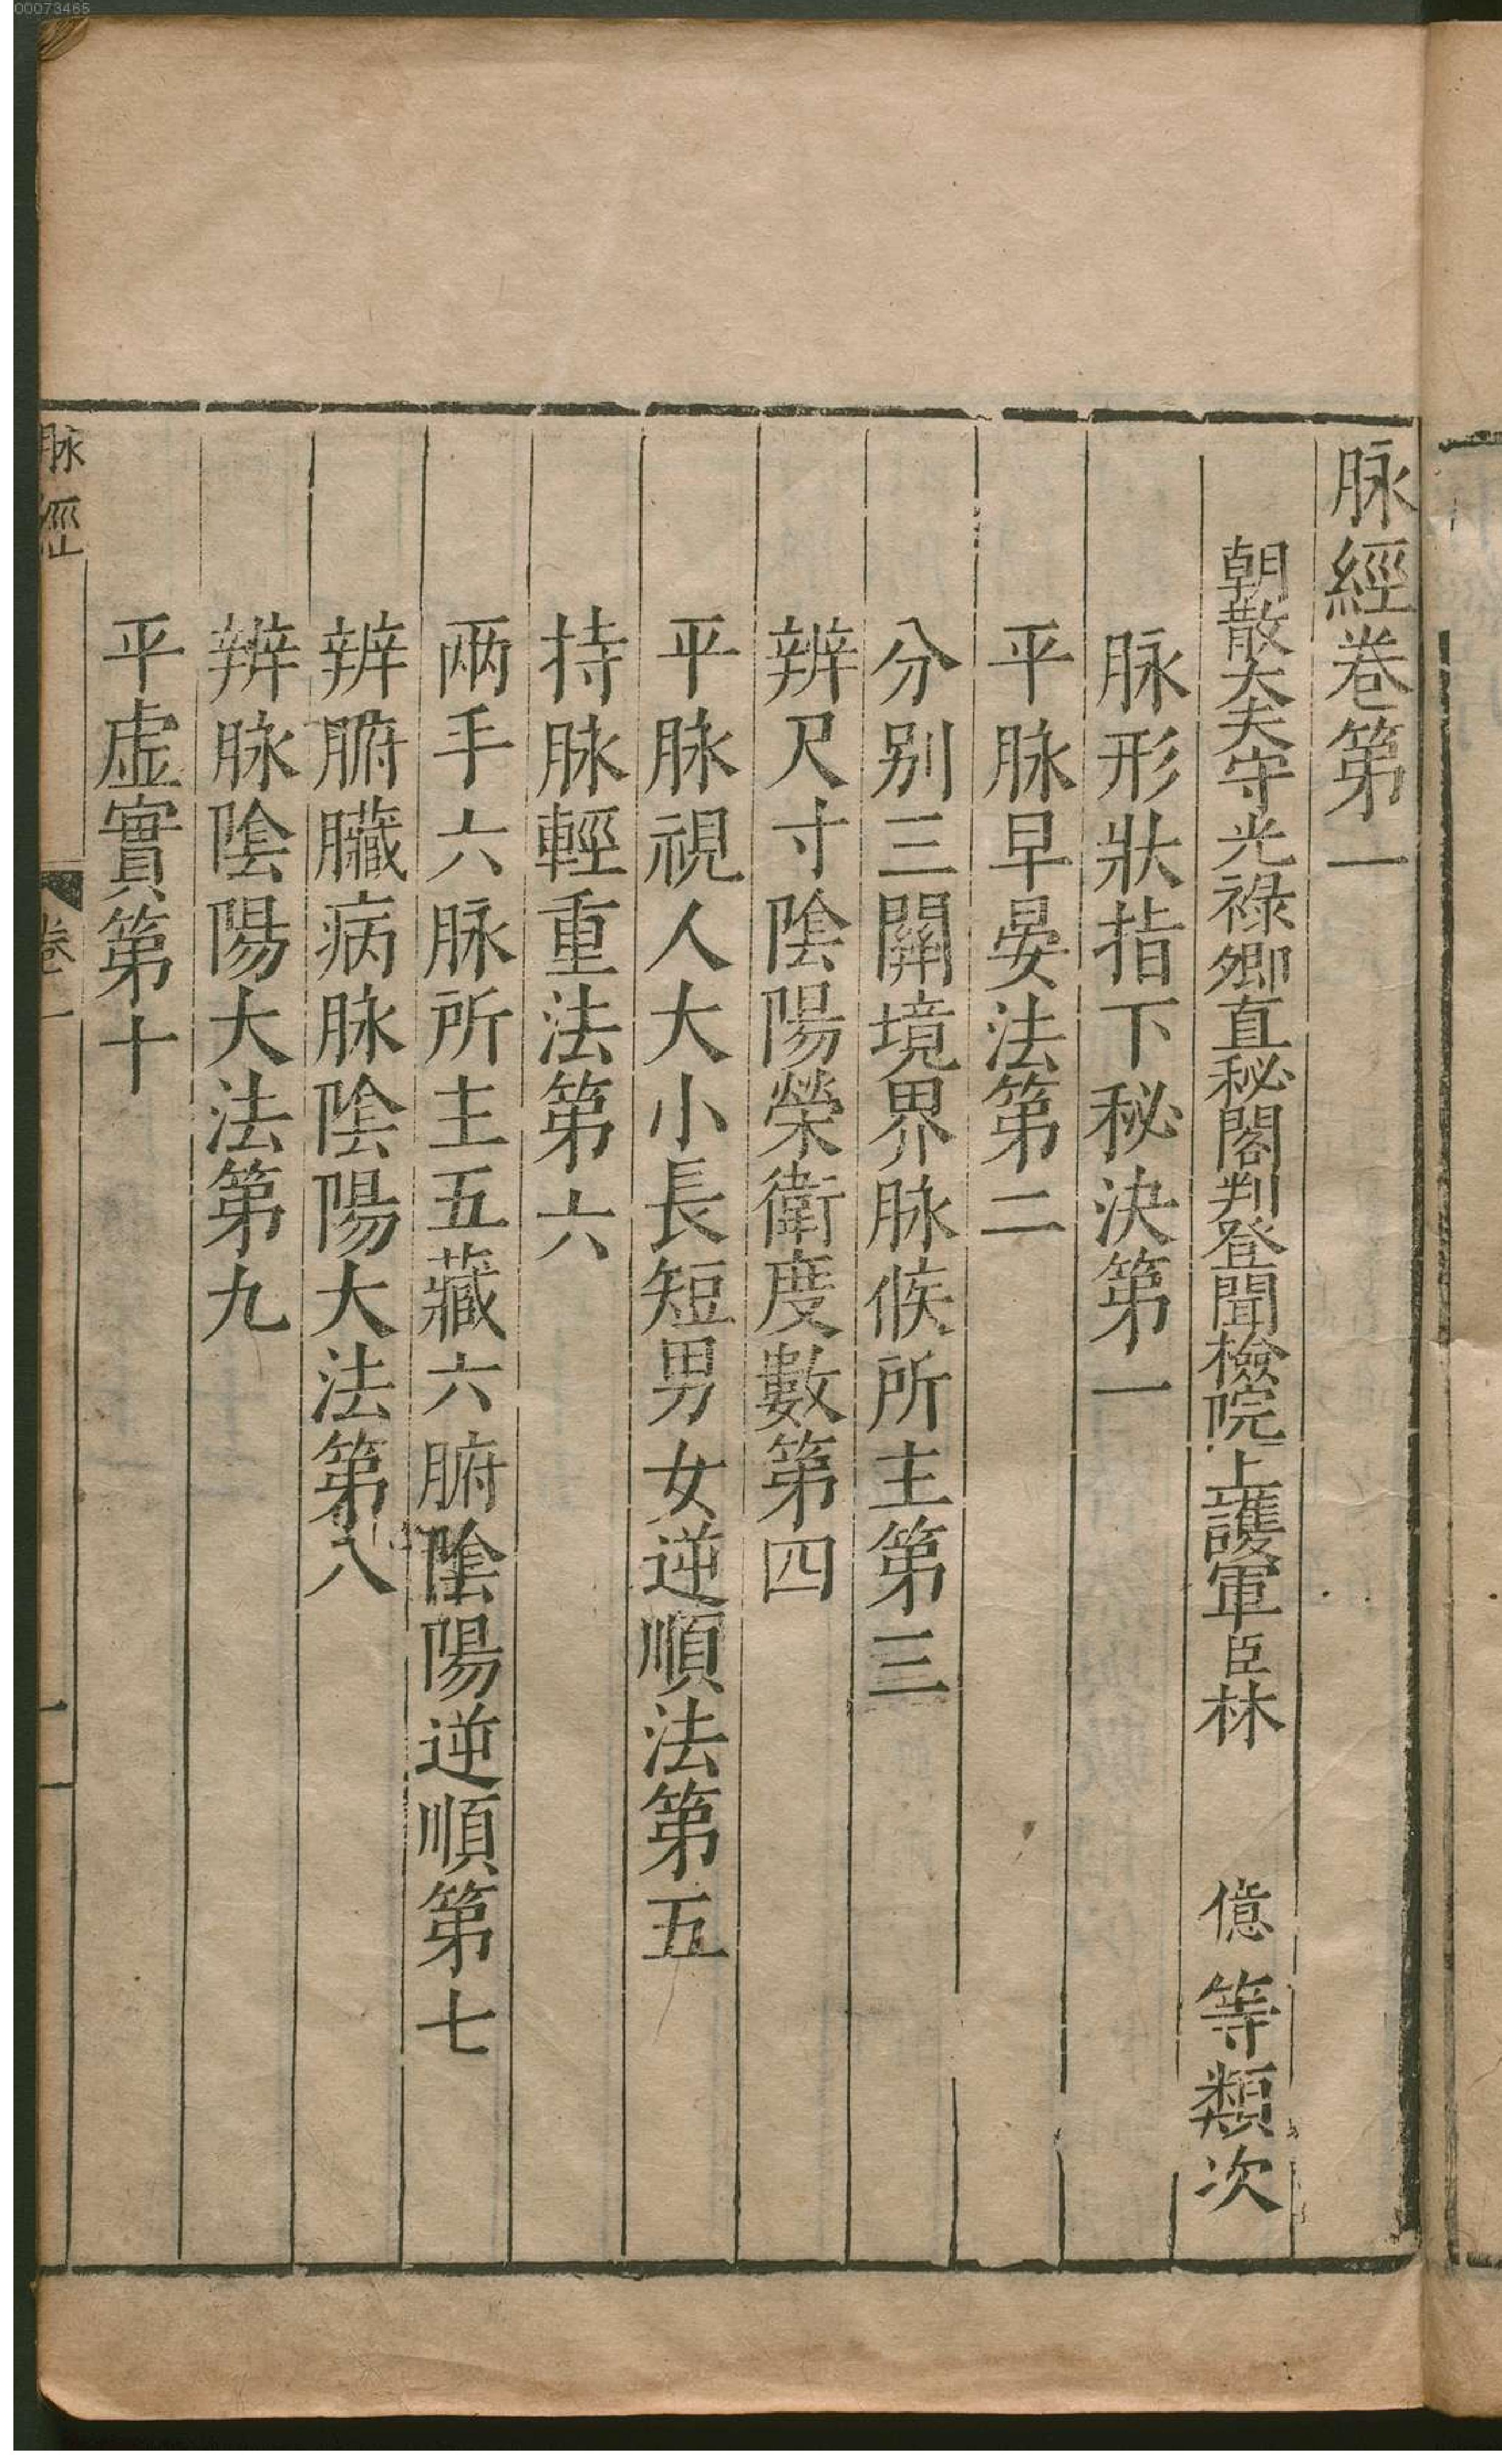 00073465
脉經卷第一
朝散大夫守光祿卿直秘閣判登聞檢院上護軍臣林億等類次
脉形狀指下秘決第一
平脉早晏法第二
分别三關境界脉候所主第三
辨尺寸陰陽榮衛度數第四
平脉視人大小長短男女逆順法第五
持脉輕重法第六
兩手六脉所主五藏六腑陰陽逆順第七
辨腑臟病脉陰陽大法第八
辨脉陰陽大法第九
平虛實第十
脉經 卷一 一